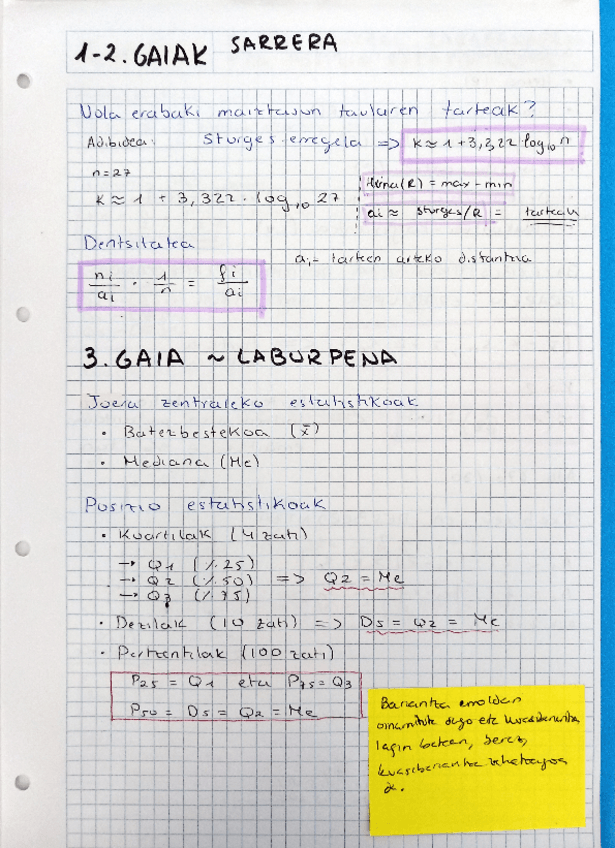 1-2. GAIAK SARRERA
Nola erabaki maiztasun taularen tarteak?
Adibidea: Sturges erregela => k ≈ 1 + 3,322 · log₁₀ n
n = 27
k ≈ 1 + 3,322 · log₁₀ 27
(R) = max - min
ai ≈ sturges/R = tarteak
Dentsitatea
ai = tarteen arteko distantzia
ni/ai · 1/n = fi/ai
3. GAIA ~ LABURPENA
Joera zentraleko estatistikoak
· Batezbestekoa (x̄)
· Mediana (Me)
Posizio estatistikoak
· Kuartilak (4 zati)
→ Q1 (%25)
→ Q2 (%50) => Q2 = Me
→ Q3 (%75)
· Dezilak (10 zati) => D5 = Q2 = Me
· Pertzentilak (100 zati)
P25 = Q1 eta P75 = Q3
P50 = D5 = Q2 = Me
Bariantza
dago eta kuasibariantza
lagin batean, beraz,
kuasibariantza
da.